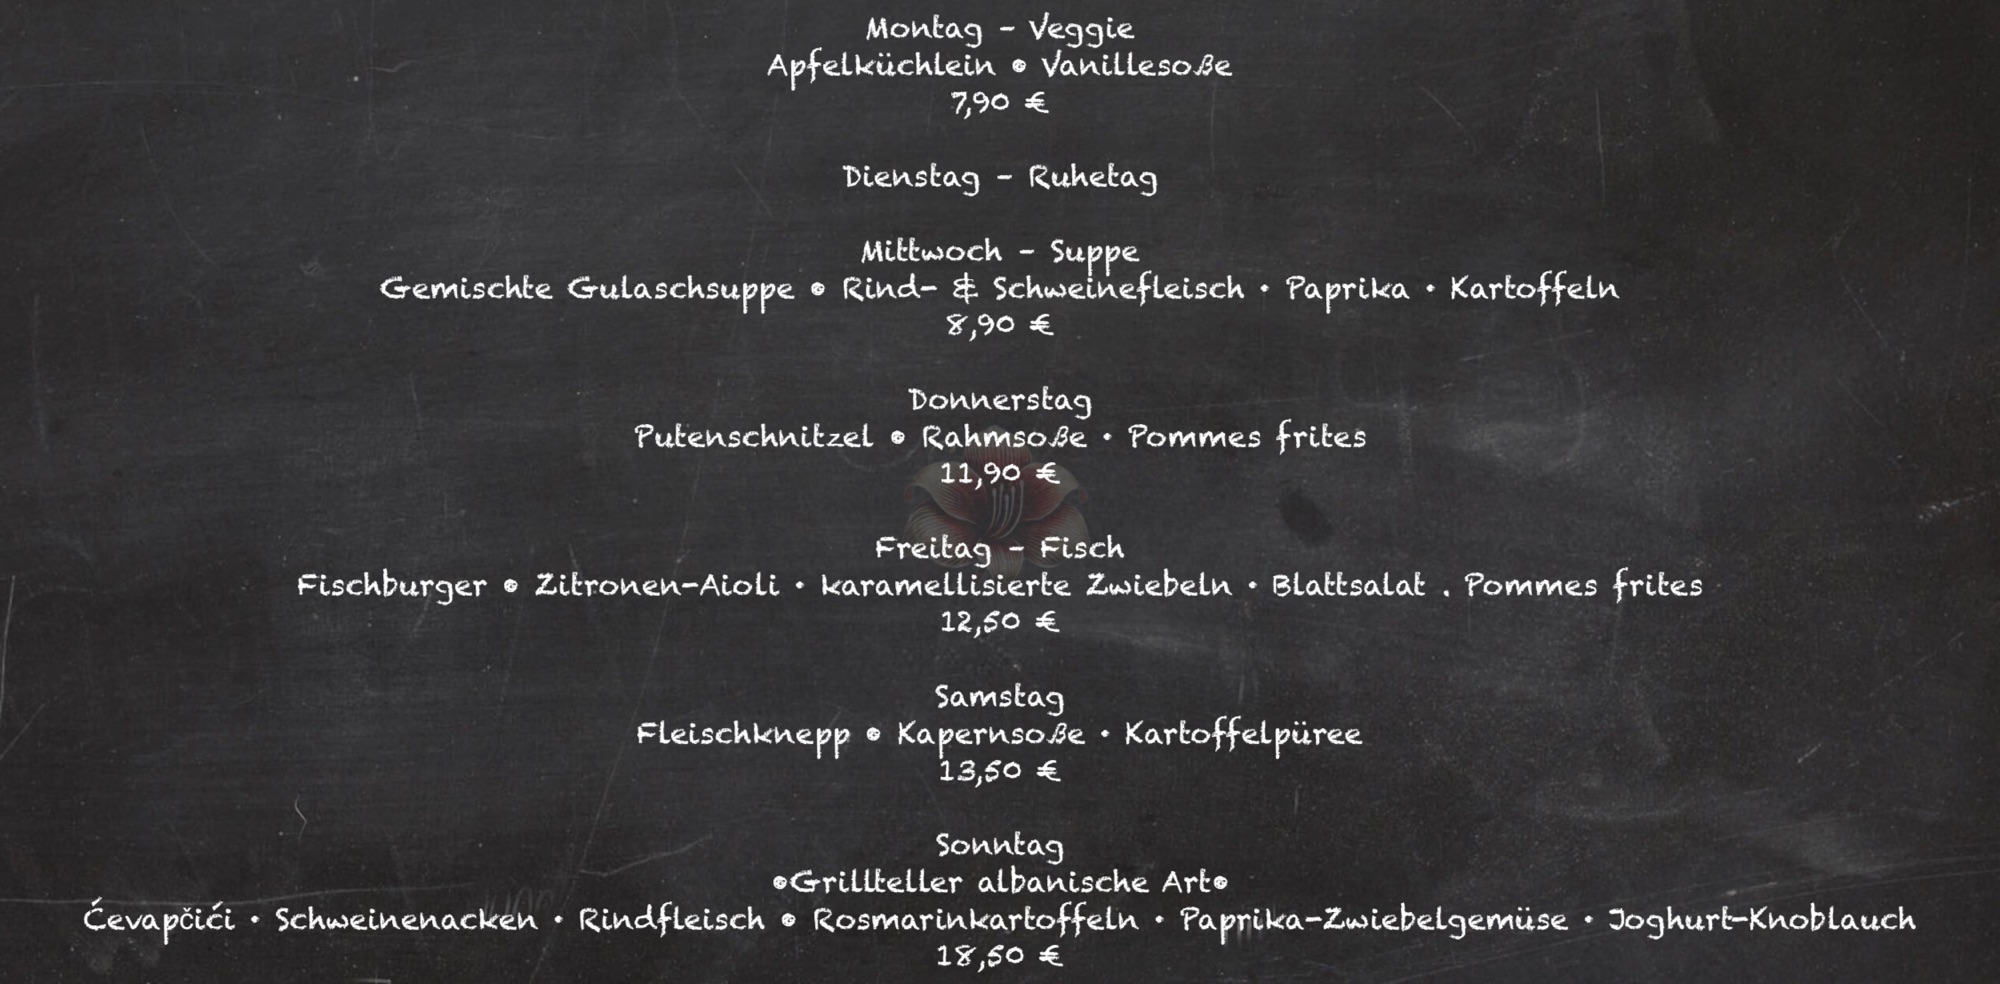 Montag - Veggie
Apfelküchlein • Vanillesoße
7,90 €
Dienstag - Ruhetag
Mittwoch - Suppe
Gemischte Gulaschsuppe • Rind- & Schweinefleisch · Paprika · Kartoffeln
8,90 €
Donnerstag
Putenschnitzel • Rahmsoße · Pommes frites
11,90 €
Freitag - Fisch
Fischburger • Zitronen-Aioli · karamellisierte Zwiebeln · Blattsalat . Pommes frites
12,50 €
Samstag
Fleischknepp • Kapernsoße · Kartoffelpüree
13,50 €
Sonntag
•Grillteller albanische Art•
Ćevapčići · Schweinenacken · Rindfleisch • Rosmarinkartoffeln · Paprika-Zwiebelgemüse · Joghurt-Knoblauch
18,50 €